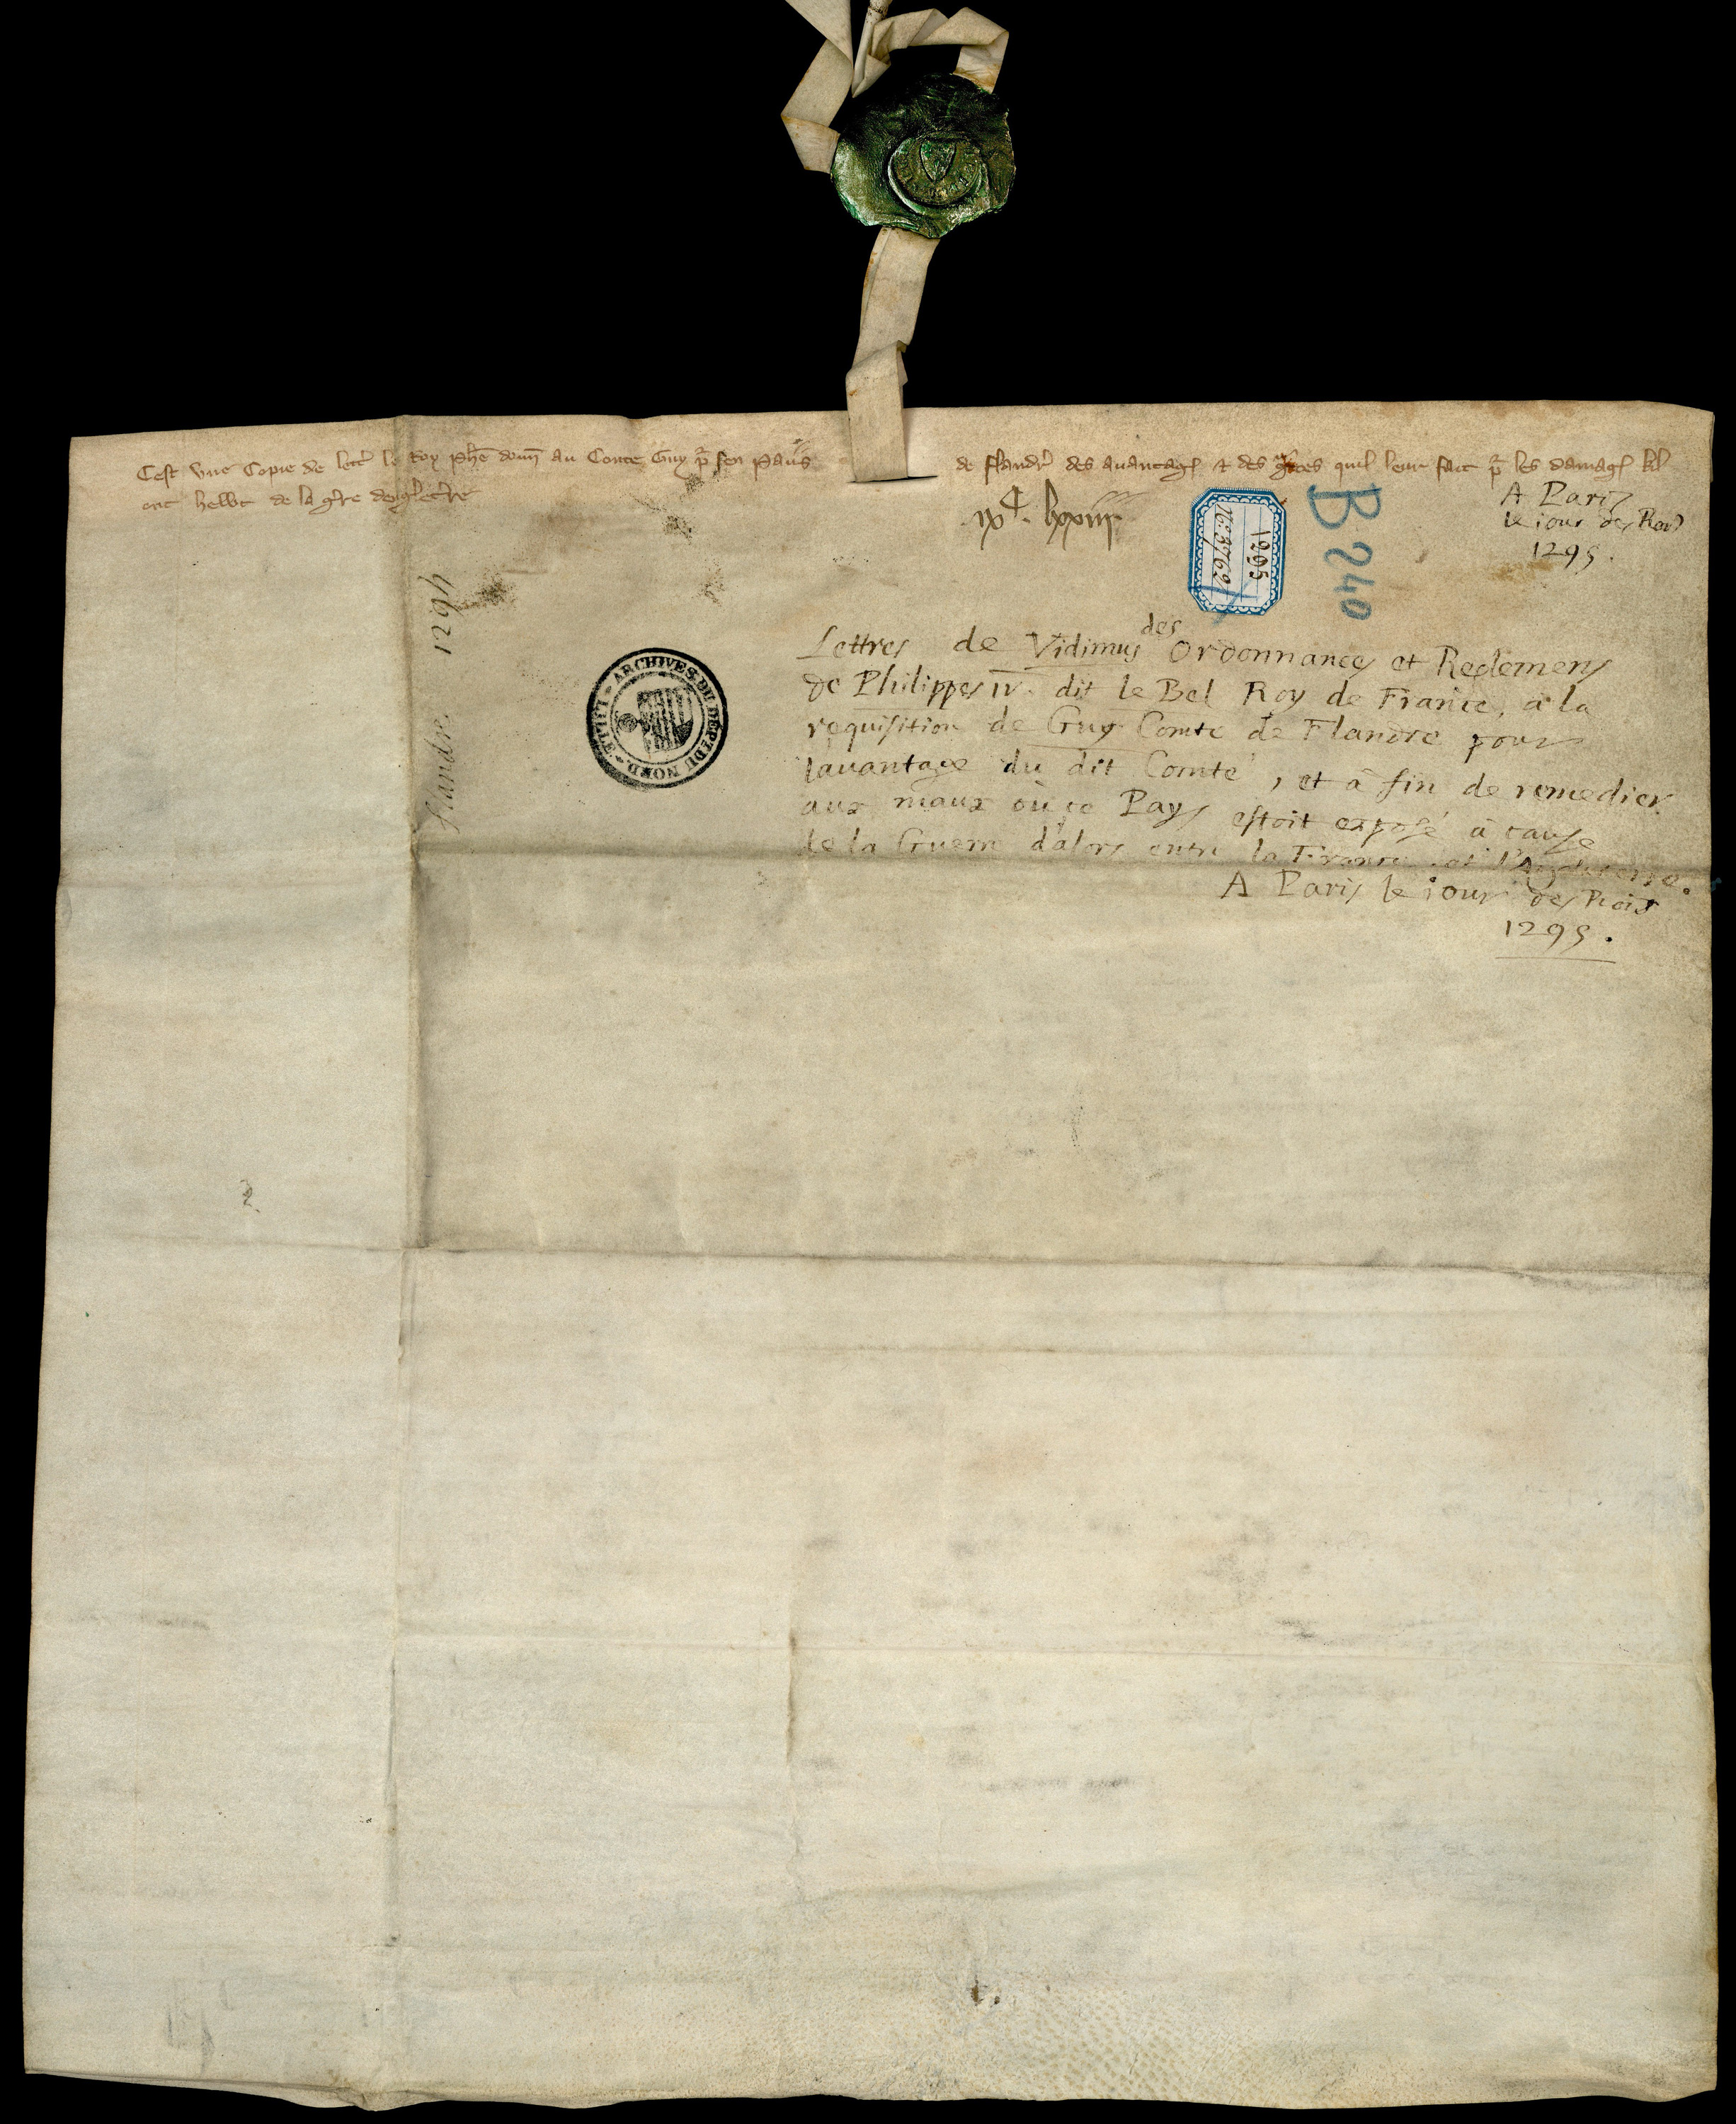 Cest une Copie de lettr̄ le Roy Phē doun̄ au Conte Guy pr̄ sen pays de flandr̄ des auantag᷒ ⁊ des gr̄ces quil leur fait pr̄ les damag᷒ kil
ont hewt de la gr̄re dengletr̄re
ixᶜ. lxxiiij.
1295
N.° 3762
B 240
A Paris
le jour des Rois
1295.
Flandre 1294
ARCHIVES DU DEPT. DU NORD. LILLE
Lettres de Vidimus des Ordonnances et Reglemens
de Philippes IV. dit le Bel Roy de France, à la
requisition de Guy Comte de Flandre pour
lauantage du dit Comté, et à fin de remedier
aux maux où ce Pays estoit exposé à cause
de la Guerre dalors entre la France et l'Angleterre.
A Paris le jour des Rois
1295.